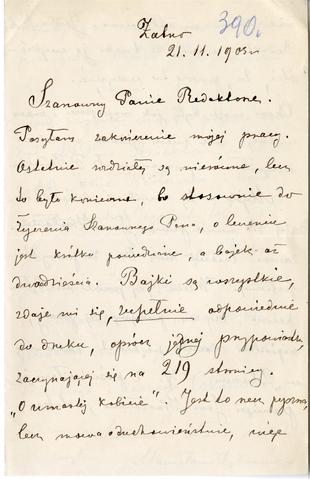 390.
Zatno
21. 11. 1903 r.
Szanowny Panie Redaktorze.
Posyłam zakończenie mojej pracy.
Ostatnie rozdziały są nierówne, lecz
to było konieczne, bo stosownie do
życzenia Szanownego Pana, o lecznictwie
jest krótko powiedziane, a bajek aż
dwadzieścia. Bajki są wszystkie,
zdaje mi się, zupełnie odpowiednie
do druku, oprócz jednej przypowiastki,
zaczynającej się na 219 stronicy.
"O umarłej kobiecie". Jest to rzecz
lecz mowa o duchowieństwie, więc